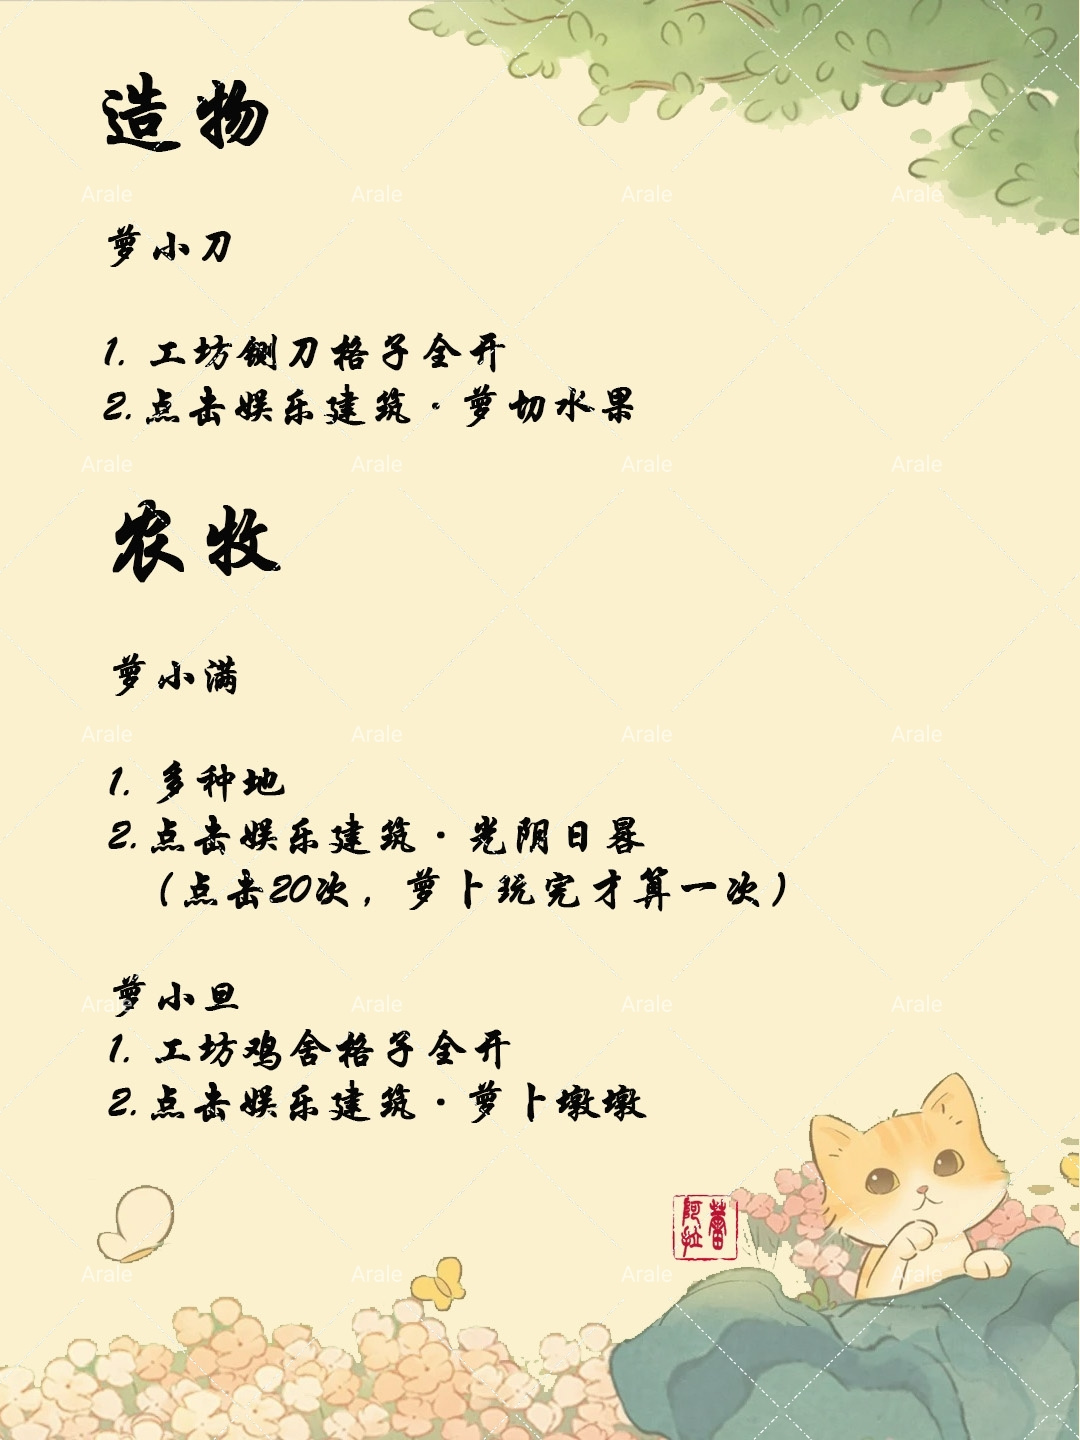 造物
Arale Arale Arale Arale
萝小刀
1. 工坊铡刀格子全开
2.点击娱乐建筑·萝切水果
Arale Arale Arale Arale
农牧
萝小满
Arale Arale Arale Arale
1. 多种地
2.点击娱乐建筑·光阴日晷
（点击20次，萝卜玩完才算一次）
萝小旦
Arale Arale Arale Arale
1. 工坊鸡舍格子全开
2.点击娱乐建筑·萝卜墩墩
蕾
阿拉
Arale Arale Arale Arale